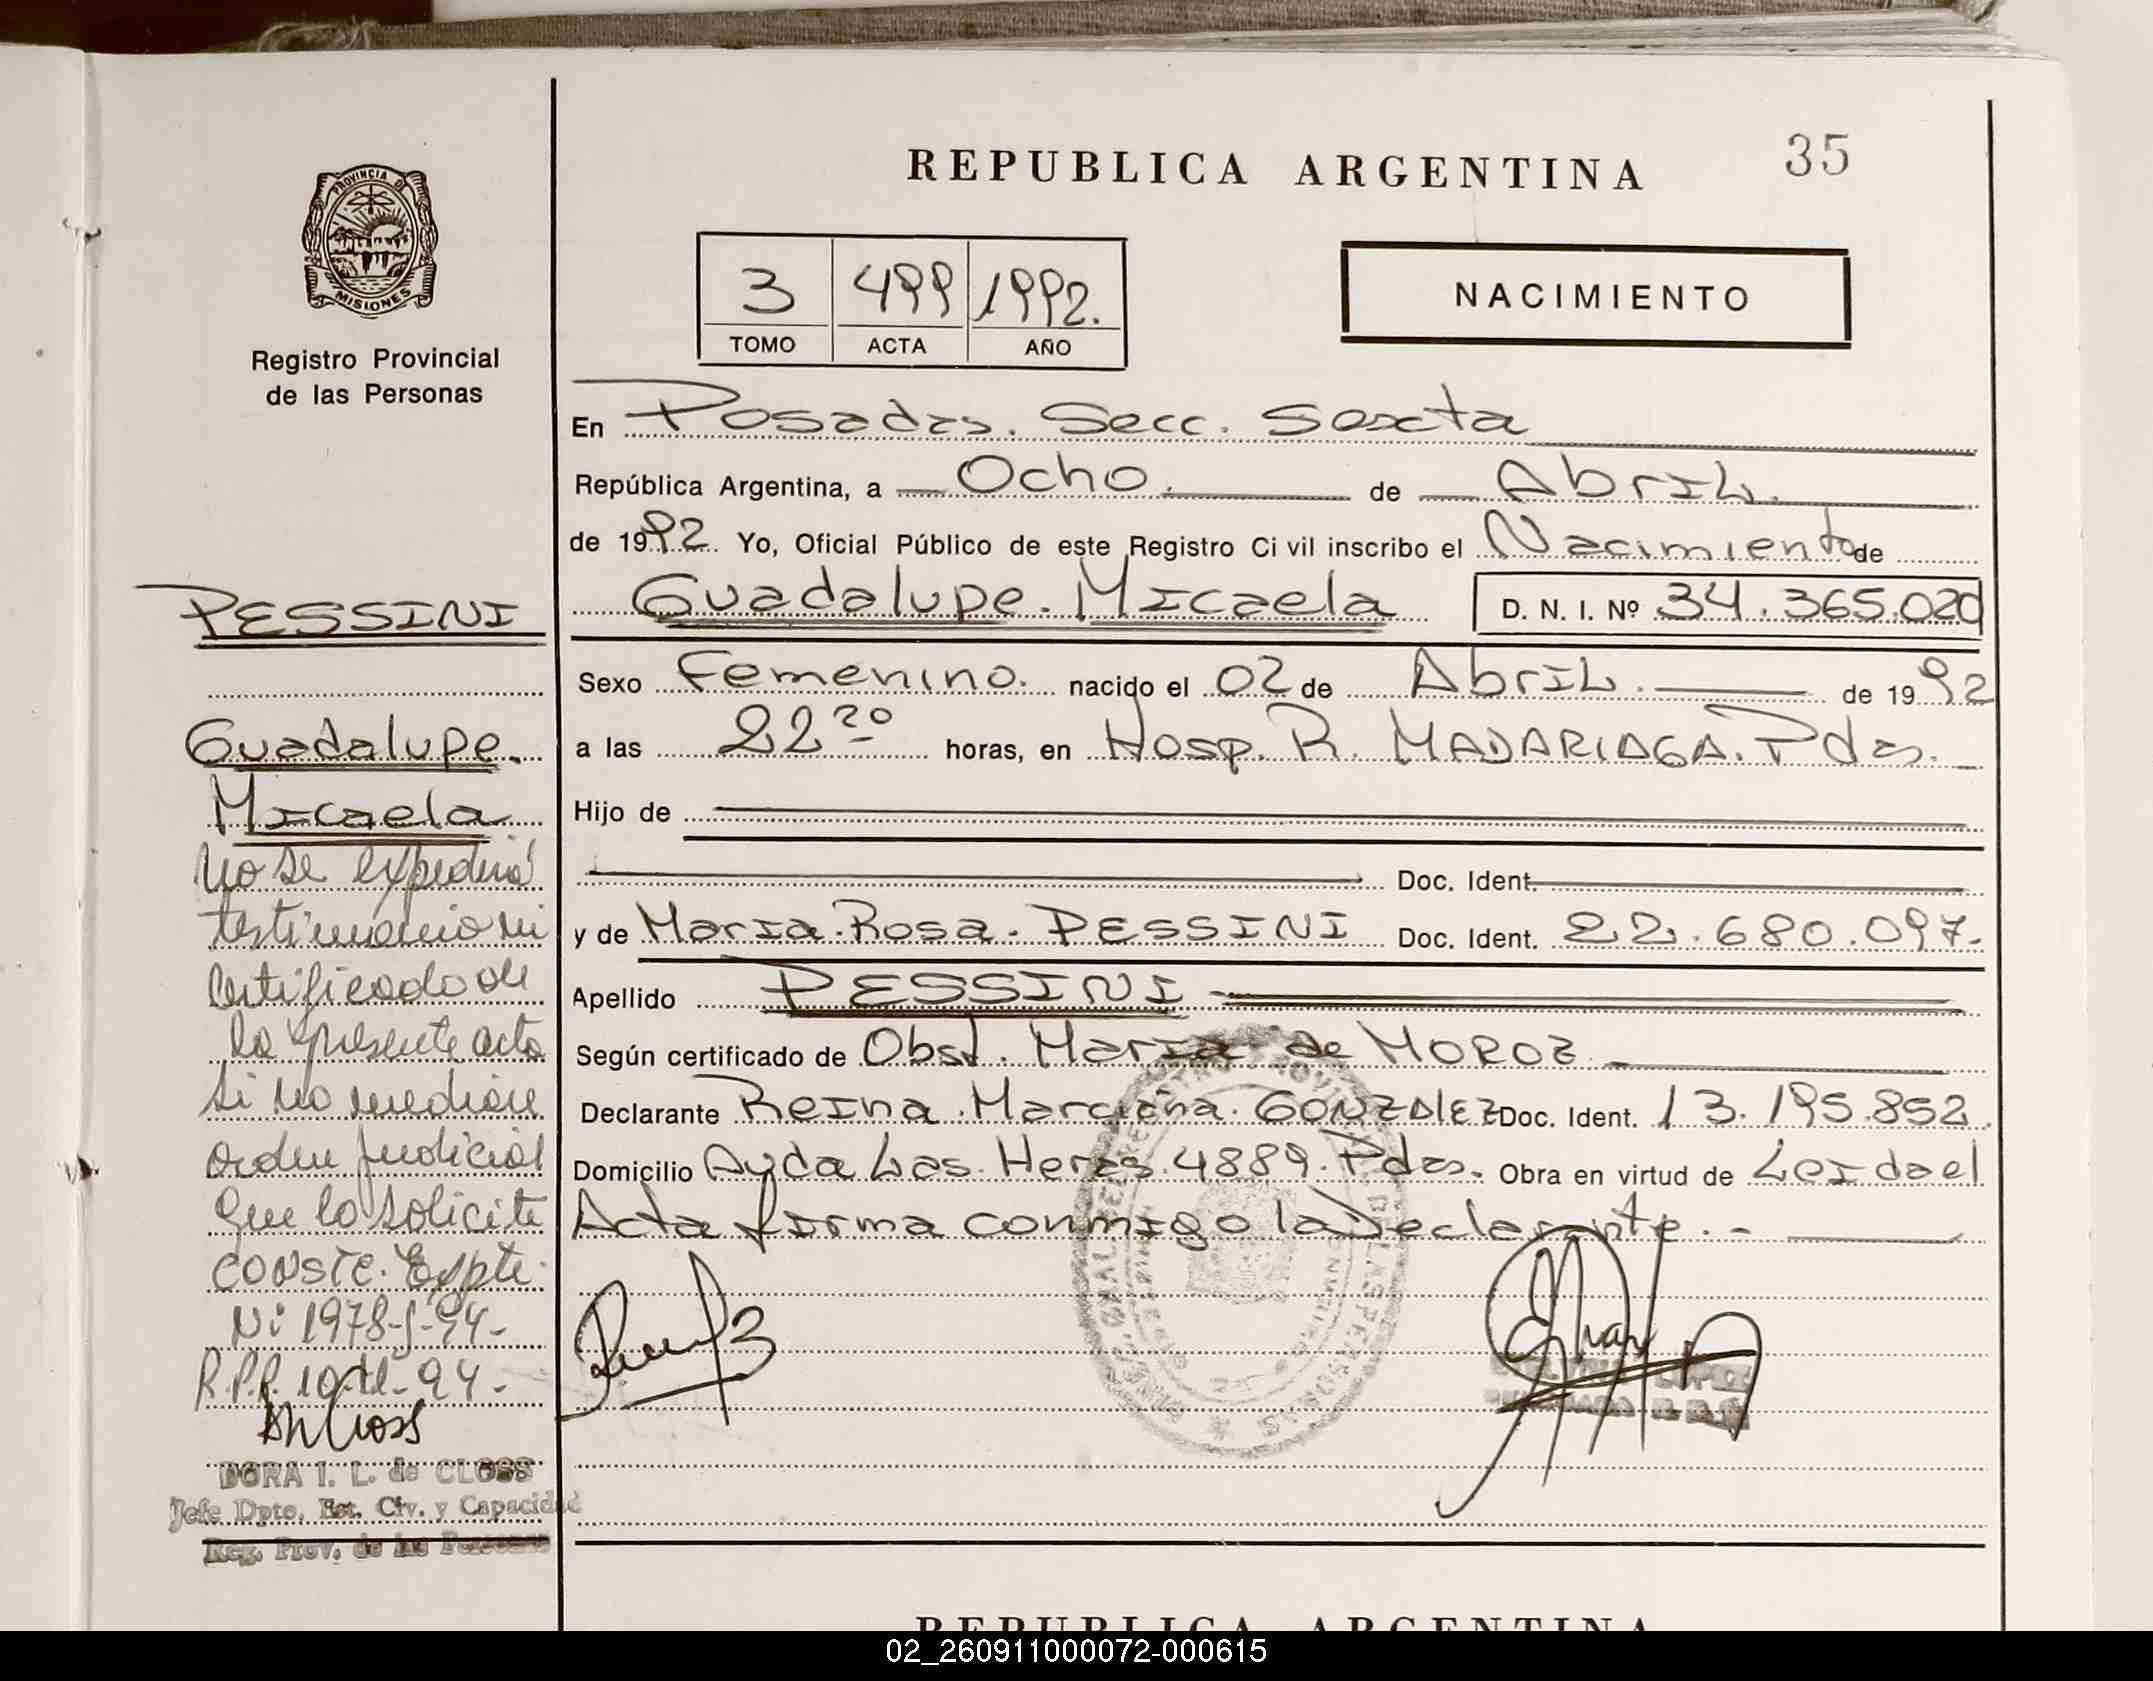 35
REPUBLICA ARGENTINA
PROVINCIA DE
MISIONES
Registro Provincial
de las Personas
3 499 1992.
TOMO ACTA AÑO
NACIMIENTO
En Posadas. Secc. Sexta
República Argentina, a Ocho. de Abril.
de 1992. Yo, Oficial Público de este Registro Civil inscribo el Nacimiento de
Guadalupe. Micaela D. N. I. Nº 34.365.020
Sexo Femenino. nacido el 02 de Abril. de 1992
a las 22 20 horas, en Hosp. R. MADARIAGA. Pdas.
Hijo de
Doc. Ident.
y de Maria. Rosa. PESSINI Doc. Ident. 22.680.097.-
Apellido PESSINI
Según certificado de Obst. Maria de MOROZ
Declarante Reina. Marciana. GONZALEZ Doc. Ident. 13.195.852
Domicilio Avda Las. Heras. 4889. Pdas. Obra en virtud de Leida el
Acta firma conmigo la Declarante.-
PESSINI
Guadalupe.
Micaela
No se expedirá
testimonio ni
Certificado de
la presente acta
si no mediare
orden judicial
que lo solicite
CONSTE. Expte.
Nº 1978-J-94-
R.P.P. 10-11-94-
DORA I. L. de CLOSS
Jefe Dpto. Est. Civ. y Capacidad
Reg. Prov. de las Personas
REPUBLICA ARGENTINA
02_260911000072-000615